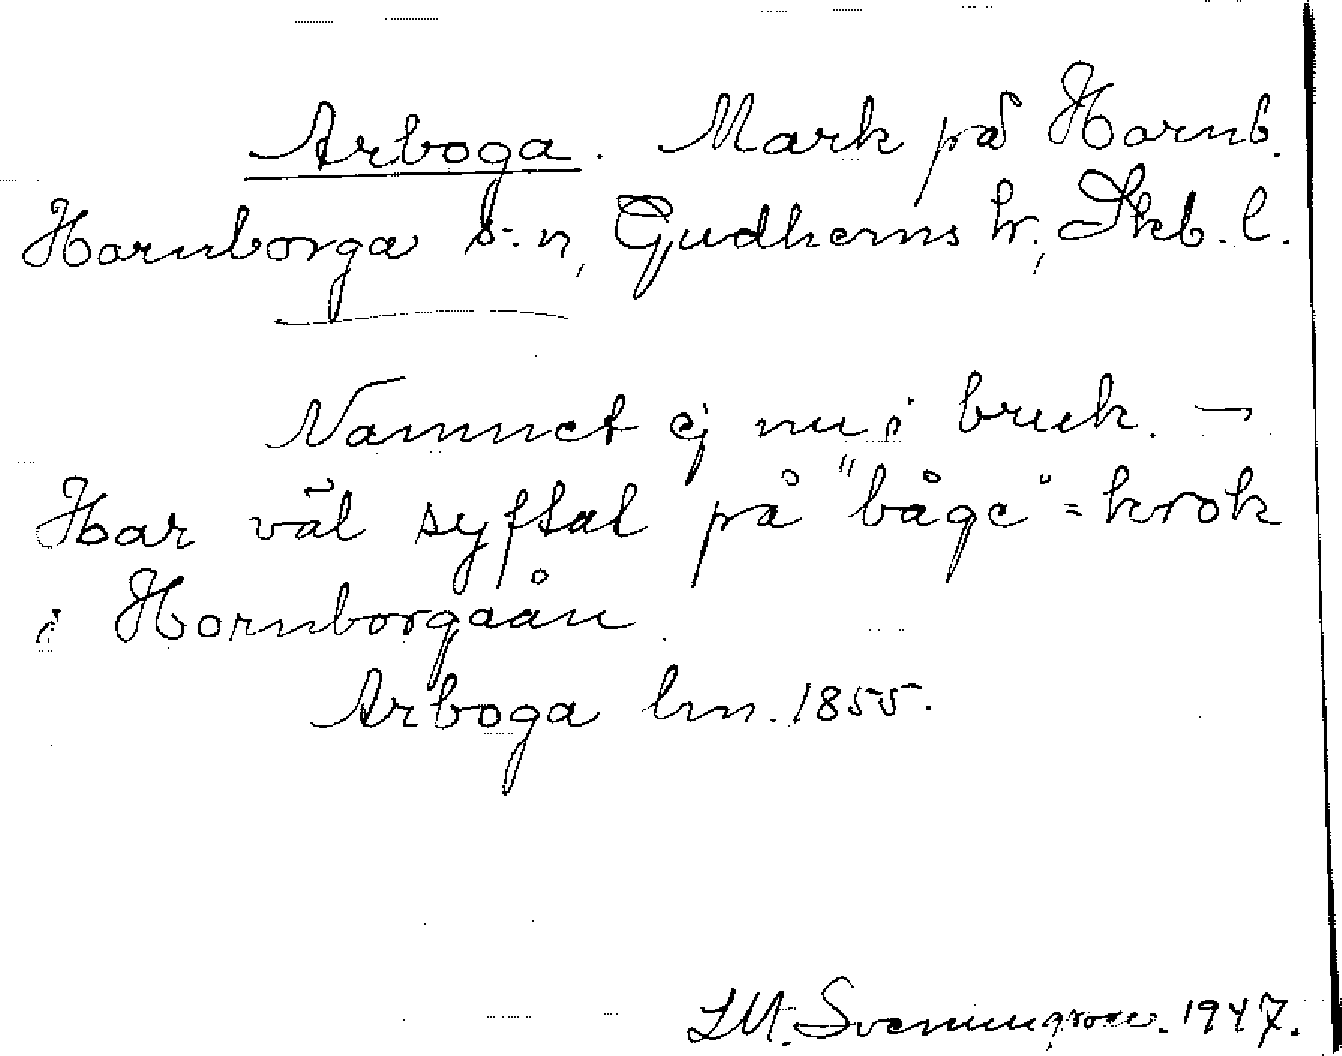 Arboga. Mark på Hornb.
Hornborga s-n, Gudhems hr, Skb. l.
Namnet ej nu i bruk. –
Har väl syftat på "båge" = krok
i Hornborgaån.
Arboga hm. 1855.
1947.